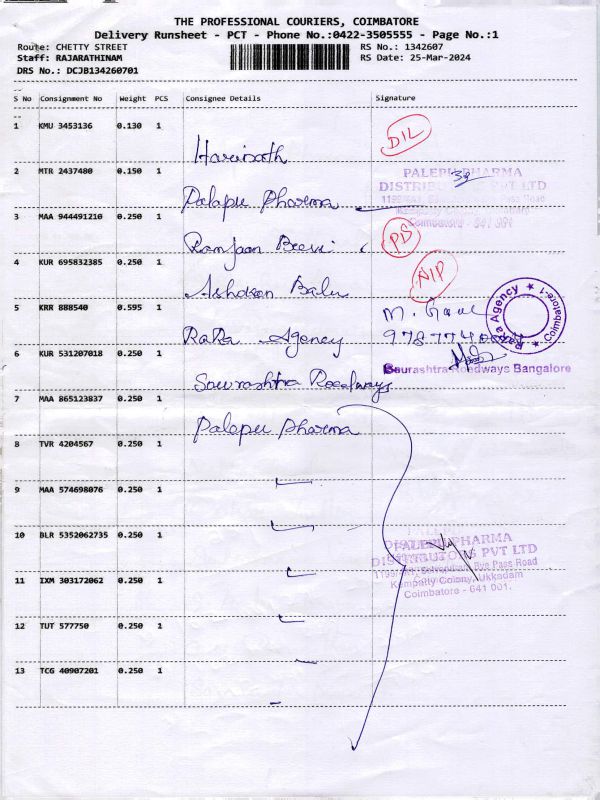 THE PROFESSIONAL COURIERS, COIMBATORE
Delivery Runsheet - PCT - Phone No.:0422-3505555 - Page No.:1
Route: CHETTY STREET RS No.: 1342607
Staff: RAJARATHINAM RS Date: 25-Mar-2024
DRS No.: DCJB134260701
S No Consignment No Weight PCS Consignee Details Signature
1 KMU 3453136 0.130 1
Harinath DIL
2 MTR 2437480 0.150 1
Palapu Pharma
PALEPU PHARMA
DISTRIBUTORS PVT LTD
Coimbatore - 641 001
3 MAA 944491210 0.250 1
Ramjaan Beevi PDS
4 KUR 695832385 0.250 1
Ashokan Balu NIP
5 KRR 888540 0.595 1
RaRa Agency
Agency ★ Coimbatore-1 ★
6 KUR 531207018 0.250 1
Saurashtra Roadways
Saurashtra Roadways Bangalore
7 MAA 865123837 0.250 1
Palepu Pharma
8 TVR 4204567 0.250 1
9 MAA 574698076 0.250 1
10 BLR 5352062735 0.250 1
PALEPU PHARMA
DISTRIBUTORS PVT LTD
Bye Pass Road
Kempatty Colony, Ukkadam
Coimbatore - 641 001.
11 IXM 303172062 0.250 1
12 TUT 577750 0.250 1
13 TCG 40907201 0.250 1